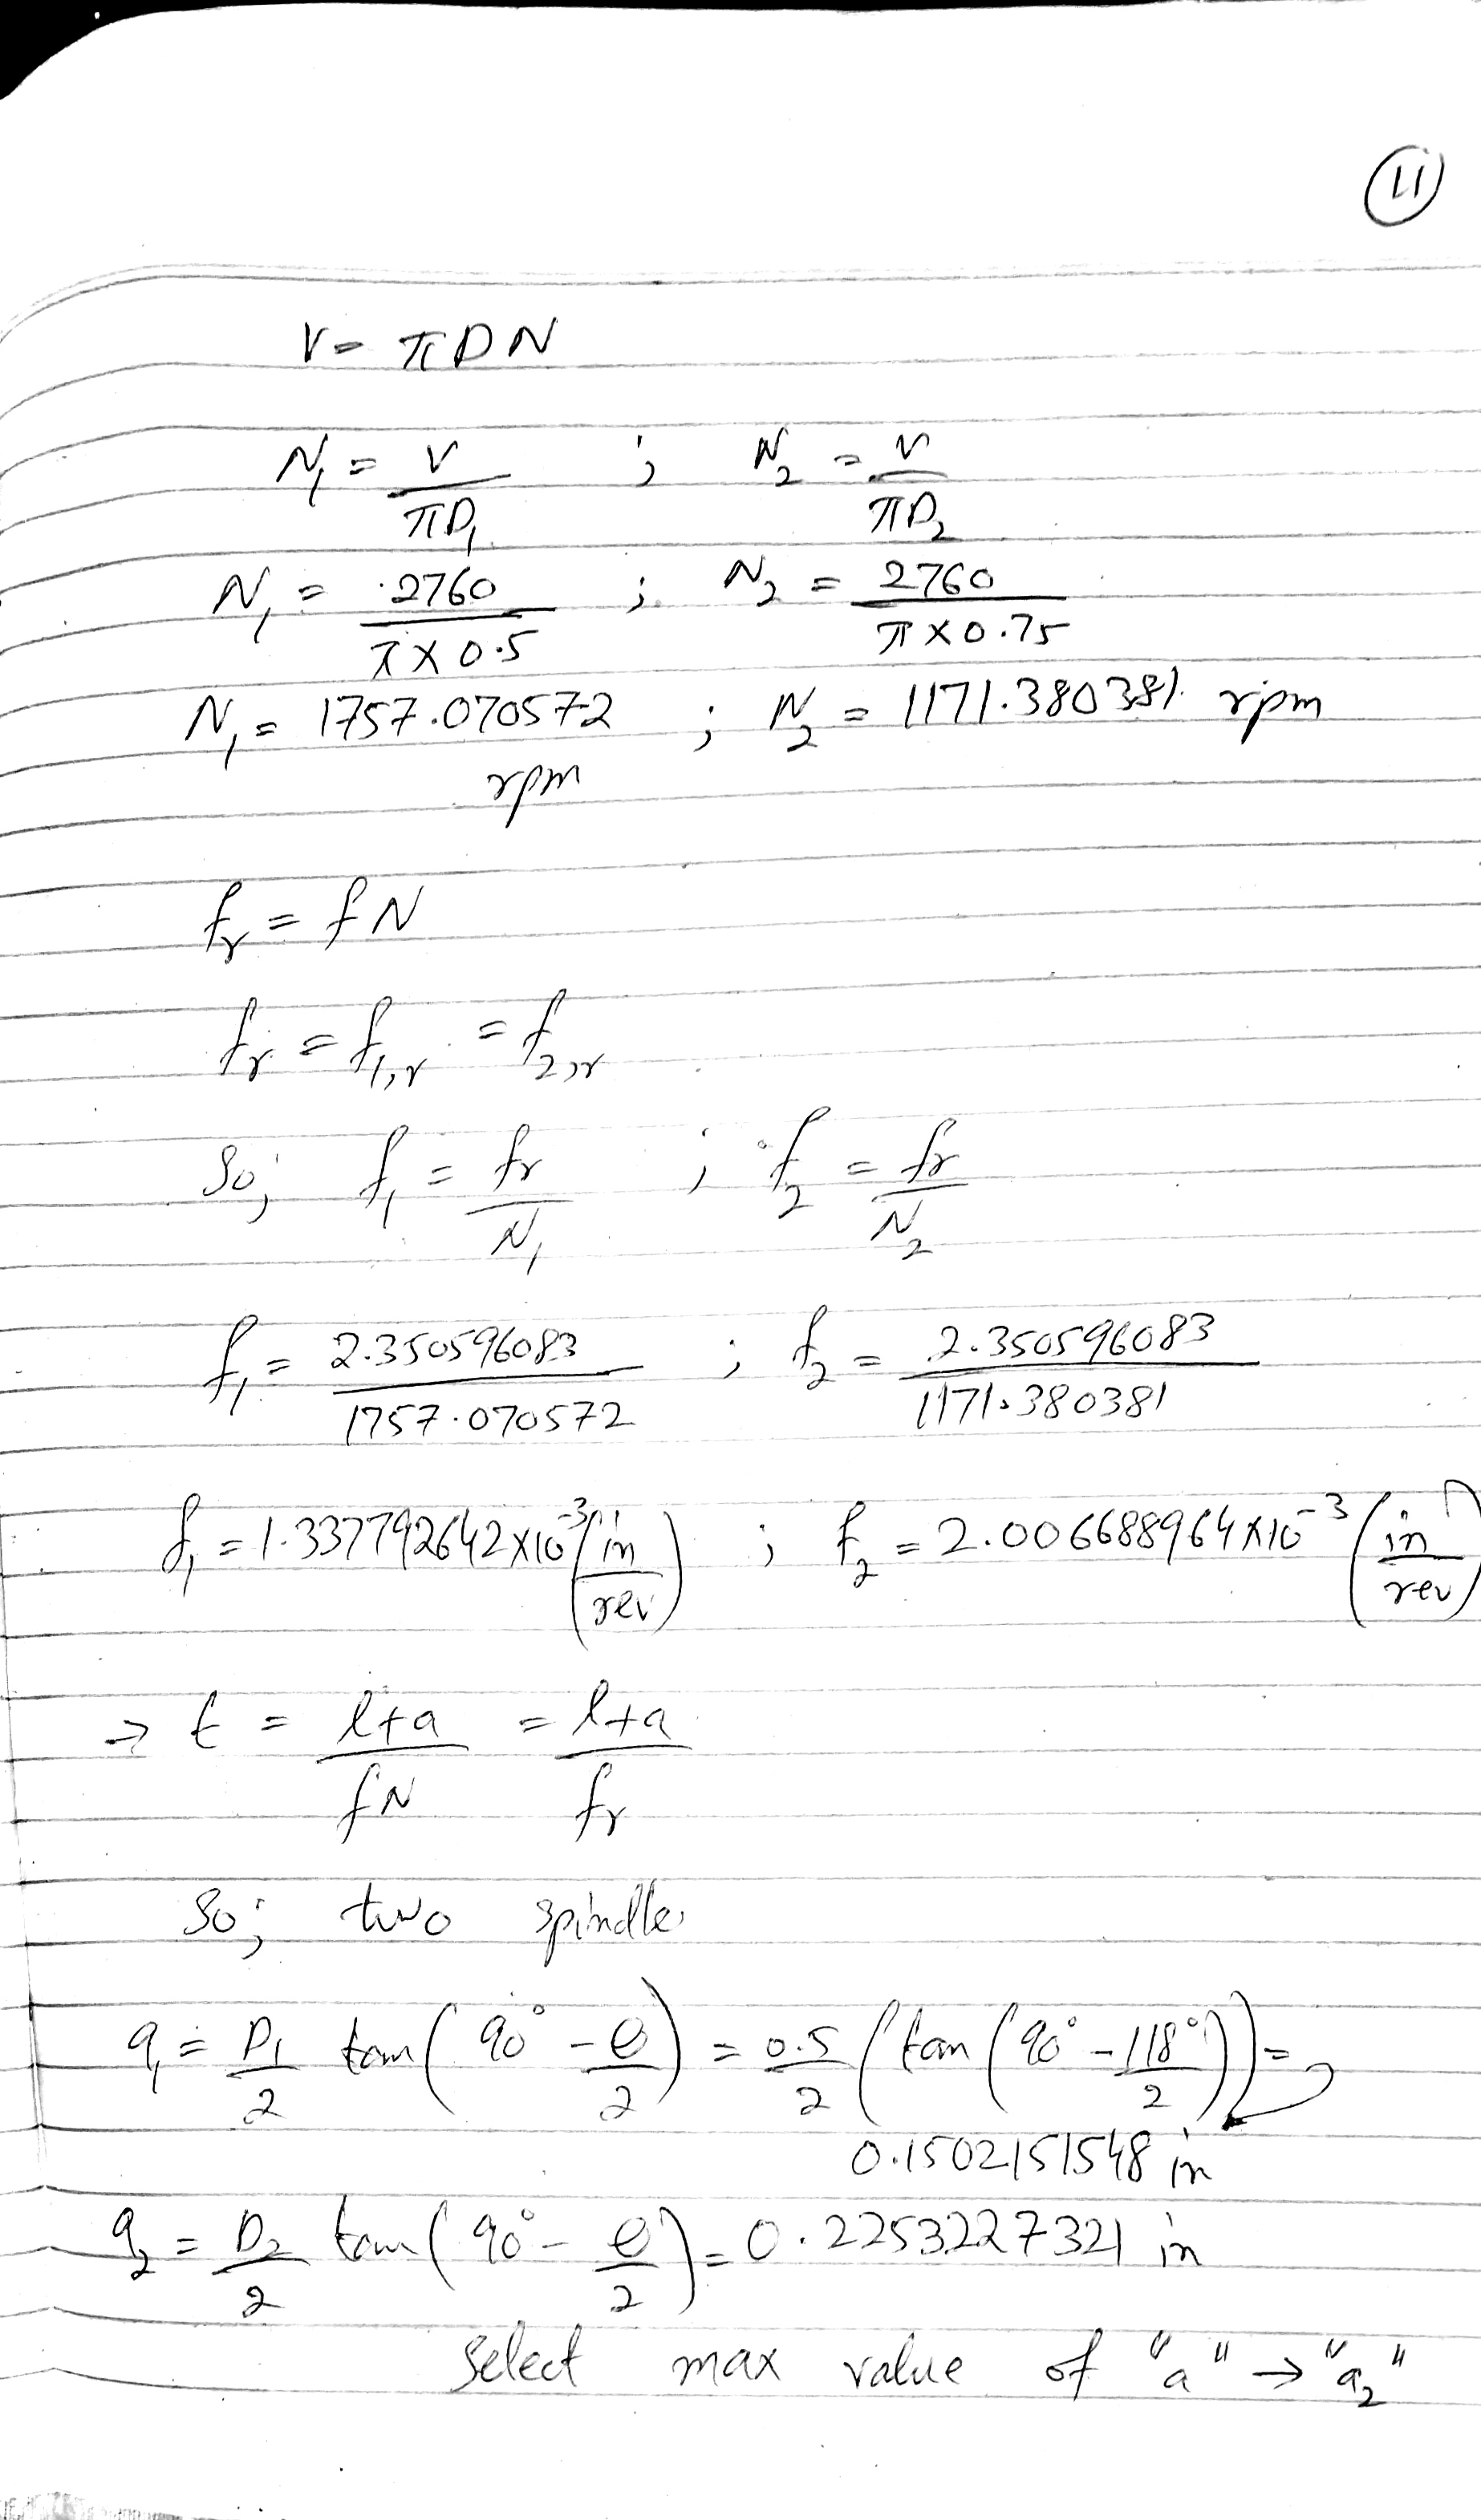 11
V = πDN
N₁ = V/πD₁ ; N₂ = V/πD₂
N₁ = 2760/π×0.5 ; N₂ = 2760/π×0.75
N₁ = 1757.070572 ; N₂ = 1171.380381 rpm
rpm
fr = fN
fr = f₁,r = f₂,r
So; f₁ = fr/N₁ ; f₂ = fr/N₂
f₁ = 2.350596083/1757.070572 ; f₂ = 2.350596083/1171.380381
f₁ = 1.337792642×10⁻³ (in/rev) ; f₂ = 2.006688964×10⁻³ (in/rev)
→ t = l+a/fN = l+a/fr
So; two spindle
a₁ = D₁/2 tan(90° − θ/2) = 0.5/2 (tan(90° − 118°/2)) =
0.1502151548 in
a₂ = D₂/2 tan(90° − θ/2) = 0.2253227321 in
Select max value of "a" → "a₂"